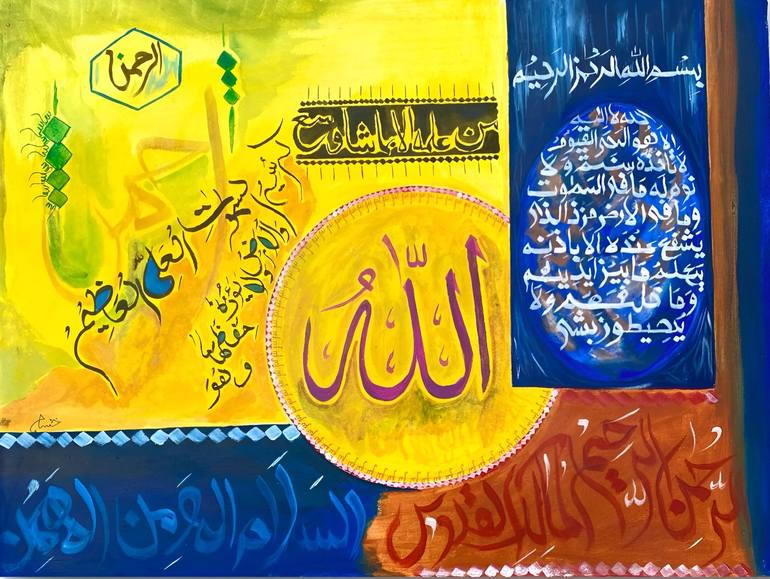 بسم الله الرحمن الرحيم
الله لا اله
الا هو الحي القيوم
لا تاخذه سنة و لا
نوم له ما في السموت
وما في الارض من ذا الذي
يشفع عنده الا باذنه
يعلم ما بين ايديهم
وما خلفهم ولا
يحيطون بشئ
من علمه الا بما شاء وسع
كرسيه السموت
والارض ولا
يؤده
حفظهما
و هو
العلي العظيم
الرحمن
الله
الرحمن الرحيم المالك القدوس
السلام المؤمن المهيمن